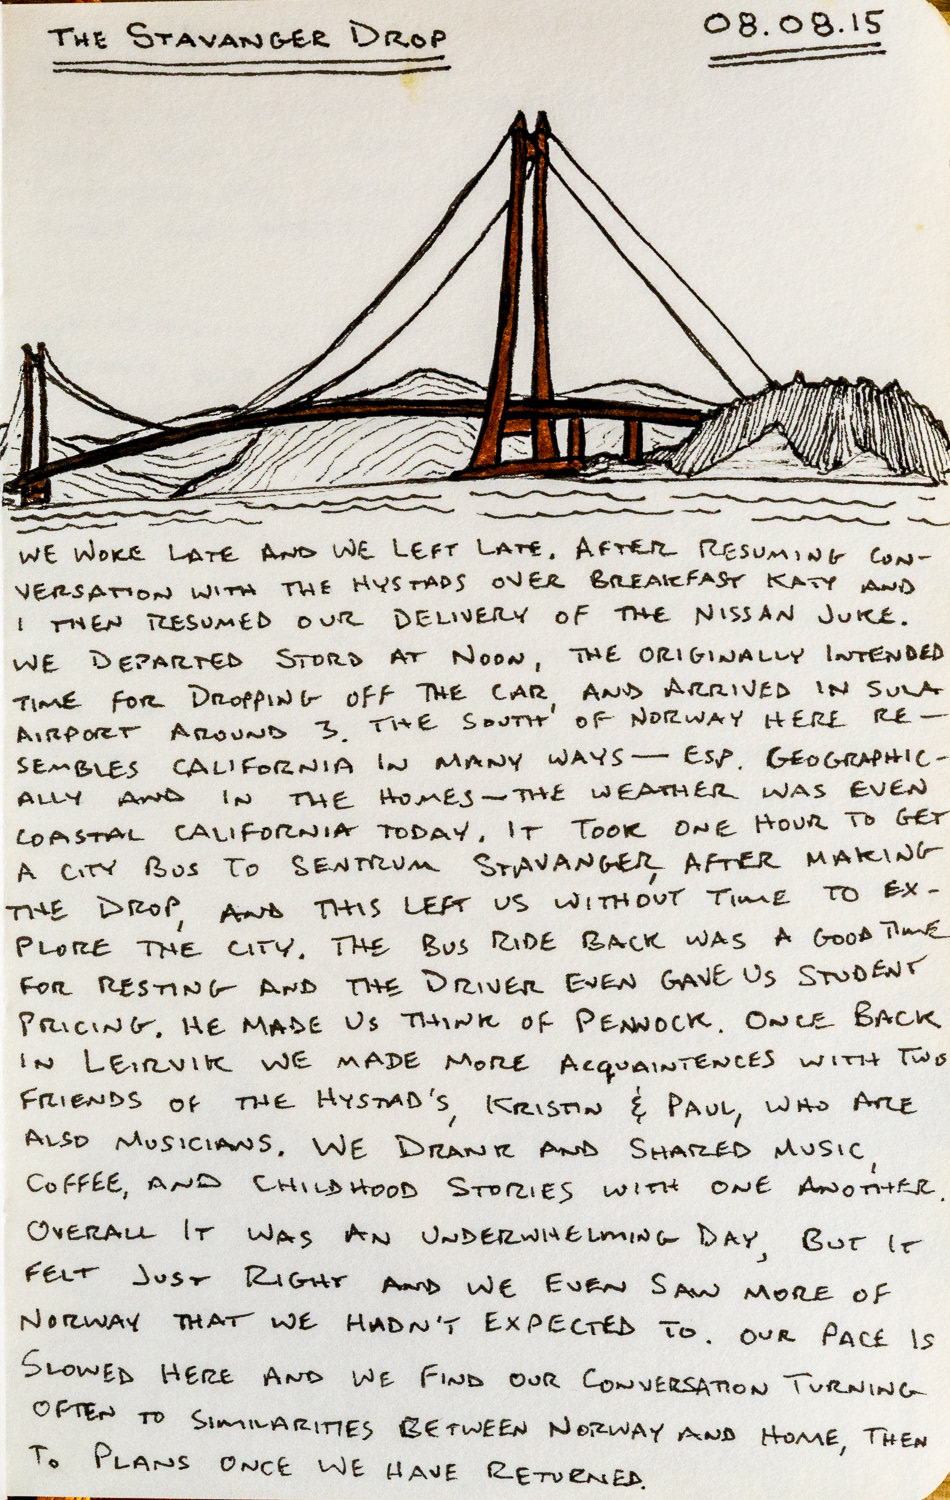 THE STAVANGER DROP
08.08.15
WE WOKE LATE AND WE LEFT LATE. AFTER RESUMING CON-
VERSATION WITH THE HYSTADS OVER BREAKFAST KATY AND
I THEN RESUMED OUR DELIVERY OF THE NISSAN JUKE.
WE DEPARTED STORD AT NOON, THE ORIGINALLY INTENDED
TIME FOR DROPPING OFF THE CAR, AND ARRIVED IN SULA
AIRPORT AROUND 3. THE SOUTH OF NORWAY HERE RE-
SEMBLES CALIFORNIA IN MANY WAYS — ESP. GEOGRAPHIC-
ALLY AND IN THE HOMES — THE WEATHER WAS EVEN
COASTAL CALIFORNIA TODAY. IT TOOK ONE HOUR TO GET
A CITY BUS TO SENTRUM STAVANGER, AFTER MAKING
THE DROP, AND THIS LEFT US WITHOUT TIME TO EX-
PLORE THE CITY. THE BUS RIDE BACK WAS A GOOD TIME
FOR RESTING AND THE DRIVER EVEN GAVE US STUDENT
PRICING. HE MADE US THINK OF PENNOCK. ONCE BACK
IN LEIRVIK WE MADE MORE ACQUAINTENCES WITH TWO
FRIENDS OF THE HYSTAD'S, KRISTIN & PAUL, WHO ARE
ALSO MUSICIANS. WE DRANK AND SHARED MUSIC,
COFFEE, AND CHILDHOOD STORIES WITH ONE ANOTHER.
OVERALL IT WAS AN UNDERWHELMING DAY, BUT IT
FELT JUST RIGHT AND WE EVEN SAW MORE OF
NORWAY THAT WE HADN'T EXPECTED TO. OUR PACE IS
SLOWED HERE AND WE FIND OUR CONVERSATION TURNING
OFTEN TO SIMILARITIES BETWEEN NORWAY AND HOME, THEN
TO PLANS ONCE WE HAVE RETURNED.